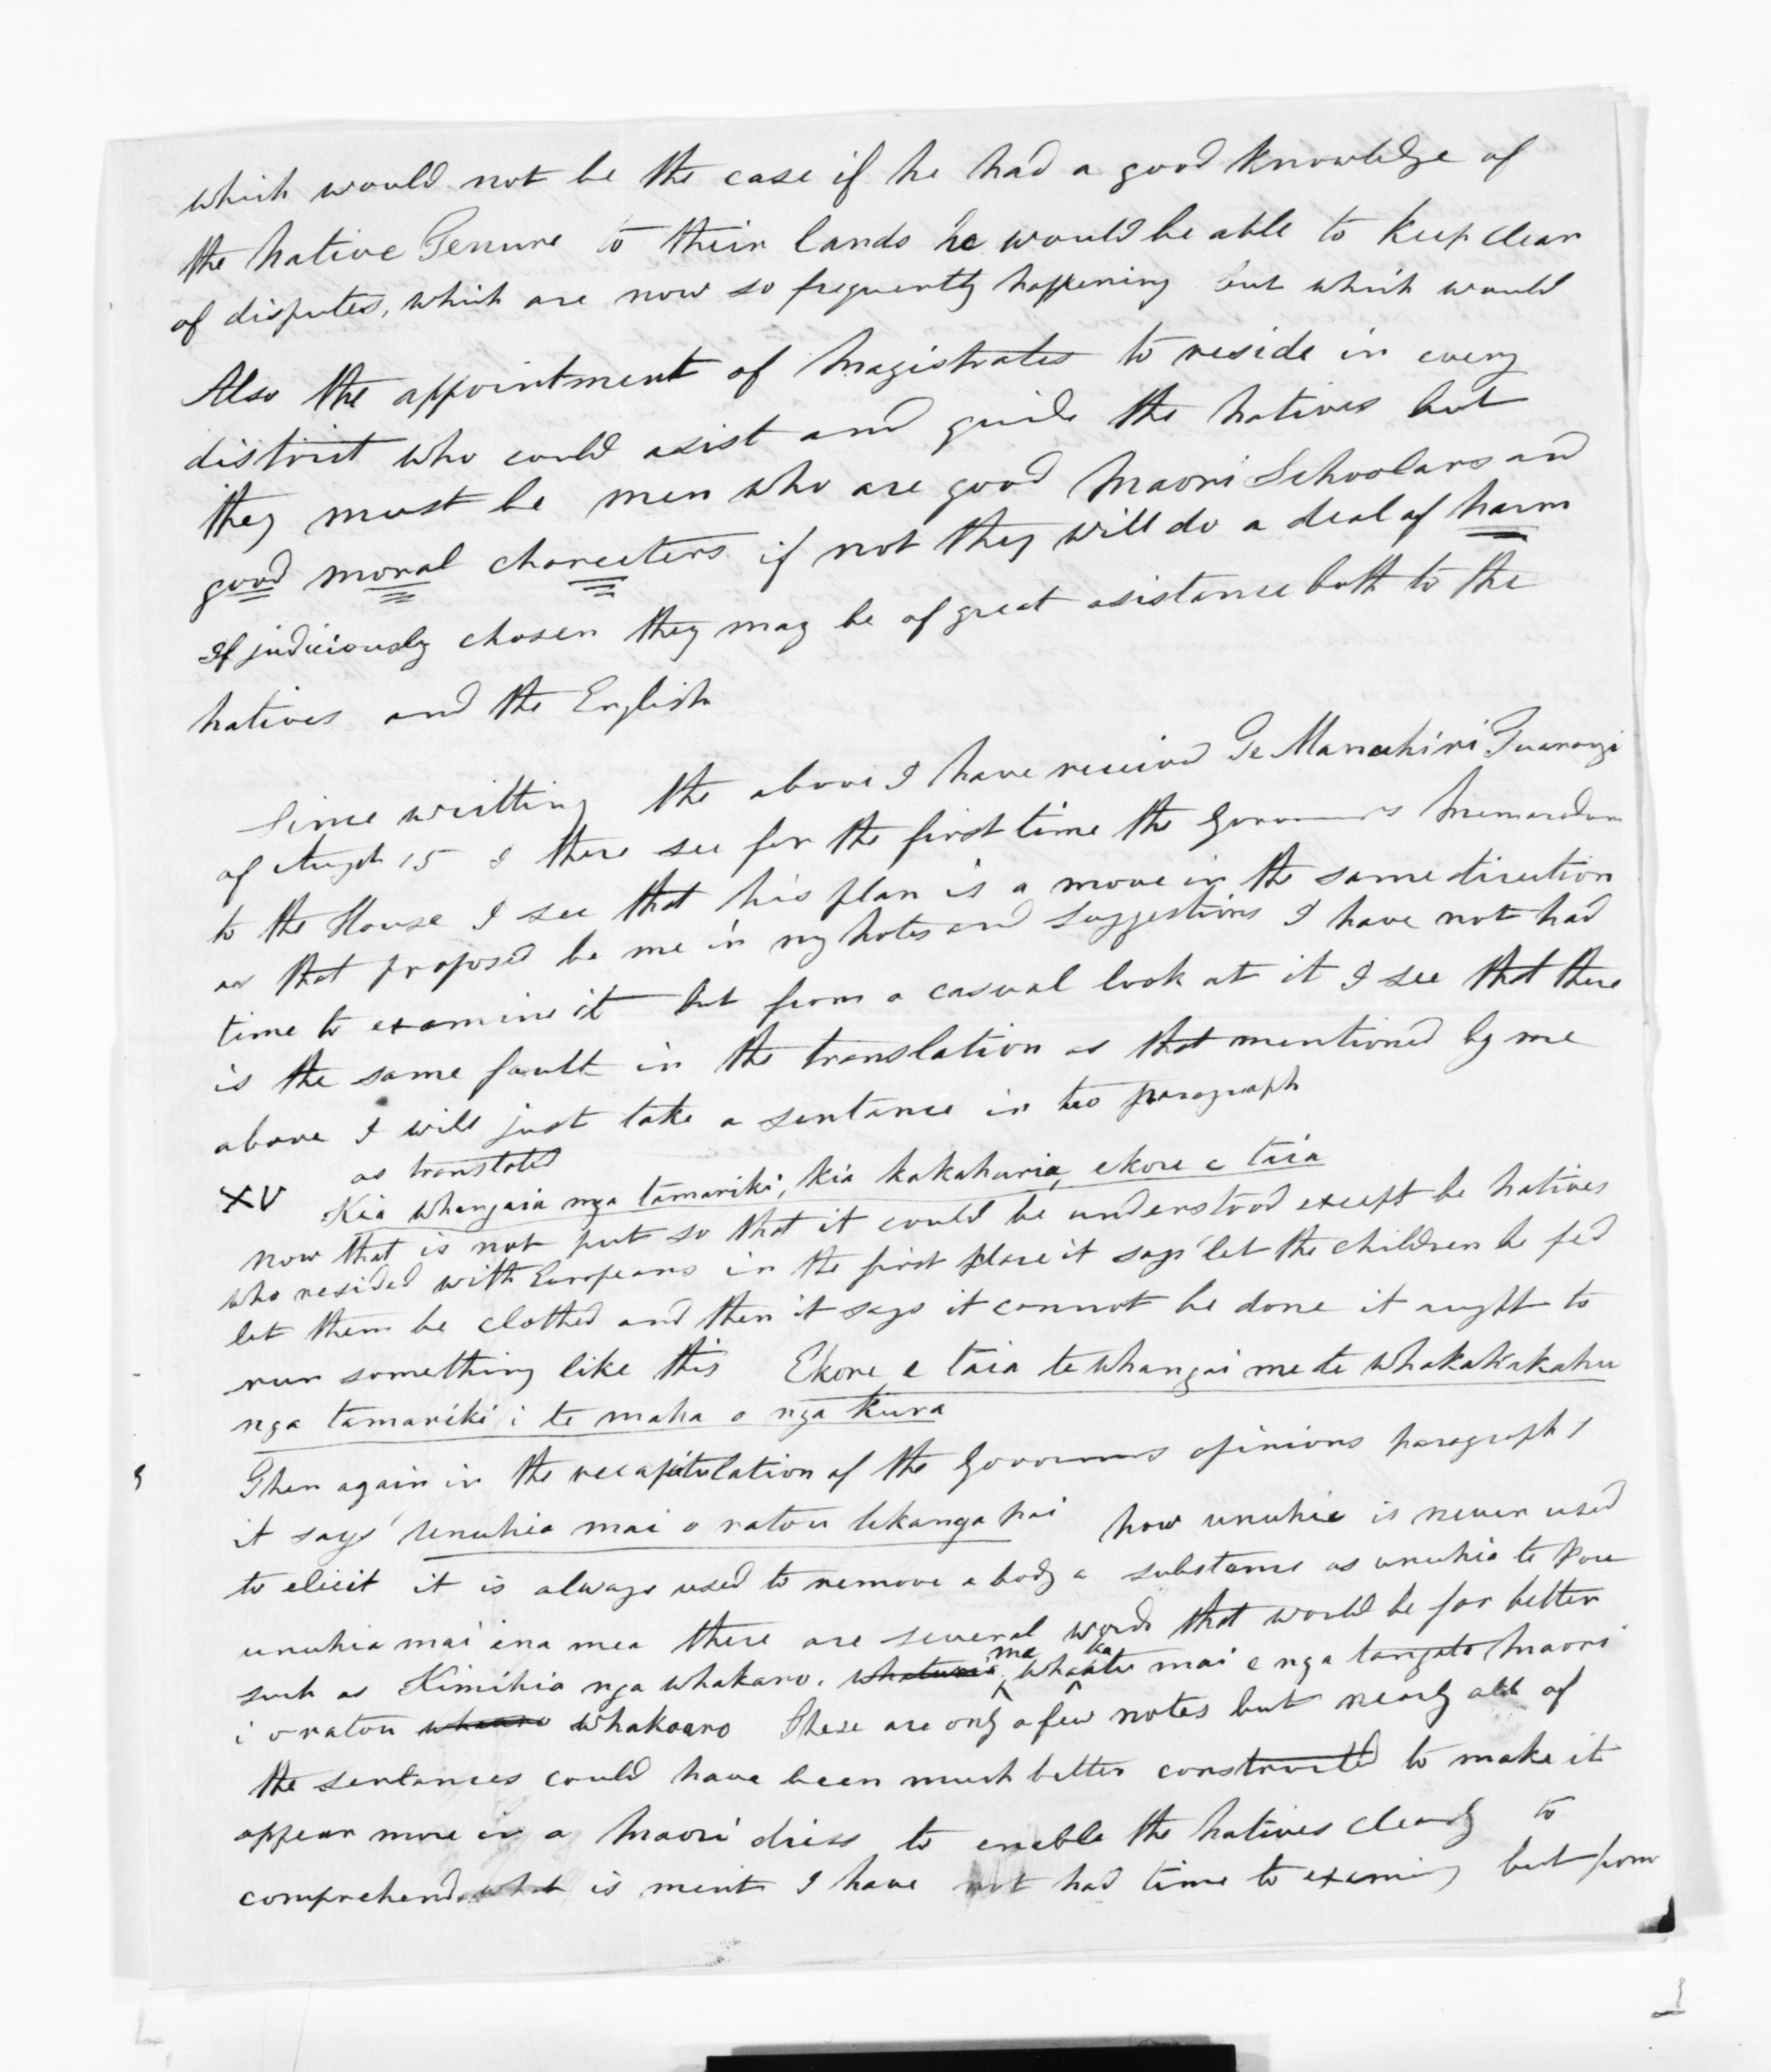 which would not be the case if he had a good knowledge of
the native Tenure to their lands he would be able to keep clear
of disputes, which are now so frequently happening but which would
Also the appointment of Magistrates to reside in every
district who could asist and guide the natives but
they must be men who are good Maori Schoolars and
good moral charecters if not they will do a deal of harm
If judiciously chosen they may be of great asistance both to the
natives and the English
Since writting the above I have received Te Manuhiri Tuarangi
of Augst 15 I there see for the first time the Governors Memorandum
to the House I see that his plan is a move in the same direction
as that proposed be me in my notes and suggestions I have not had
time to examine it but from a casual look at it I see that there
is the same fault in the translation as that mentioned by me
above I will just take a sentance in two paragraph
as translated
XV Kia whangaia nga tamariki, kia kakahuria, ekore e taia
now that is not put so that it could be understood except be natives
who resided with Europeans in the first place it says 'let the children be fed
let them be clothed and then it says it connot be done it aught to
run something like this Ekore e taia te whangai me te whakakakahu
nga tamariki i te maha o nga kura
Then again in the recapitulation of the Governors opinions paragraph 1
it says 'Unuhia mai o ratou hai now unuhia is never used
to elicit it is always used to remove a body a substance as unuhia te pou
unuhia mai ena mea there are several words that would be far better
such as Kimihia nga whakaro. me whakatu mai e nga tangata Maori
i o ratou whakaaro These are only a few notes but nearly all of
the sentances could have been much better constructed to make it
appear more in a Maori dress to enable the natives clearly to
comprehend what is ment I have not had time to examing but from